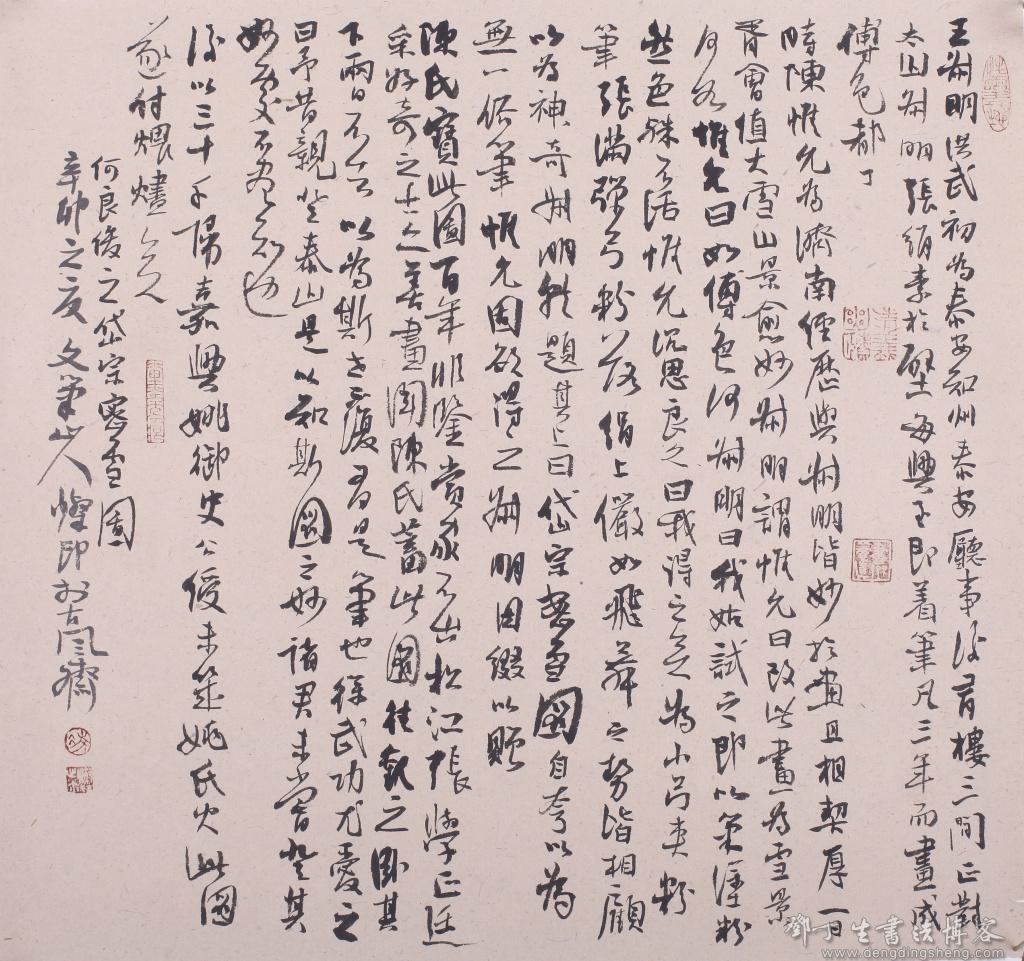 王叔明洪武初為泰安知州泰安廳事後有樓三間正對
太山叔明張絹素於壁每興至即着筆凡三年而畫成
傅色都了
時陳惟允為濟南經歷與叔明皆妙於畫且相契厚一日
胥會值大雪山景愈妙叔明謂惟允曰改此畫為雪景
何如惟允曰如傅色何叔明曰我姑試之即以筆塗粉
然色殊不活惟允沉思良久曰我得之矣為小弓夾粉
筆張滿彈弓粉落絹上儼如飛舞之勢皆相顧
以為神奇叔明就題其上曰岱宗密雪圖自夸以為
無一俗筆惟允固欲得之叔明因綴以贈
陳氏寶此圖百年非鑒賞家不出松江張學正廷
采好奇之士亦善畫聞陳氏蓄此圖往觀之臥其
下兩日不去以為斯世不復有是筆也徐武功尤愛之
曰予昔親登泰山是以知斯圖之妙諸君未嘗登其
妙處不盡知也
後以三十千歸嘉興姚御史公綬未幾姚氏火此圖
遂付煨燼矣
何良俊之岱宗密雪圖
辛卯之夏文筆山人 於古風齋
鄧丁生書法博客
www.dengdingsheng.com